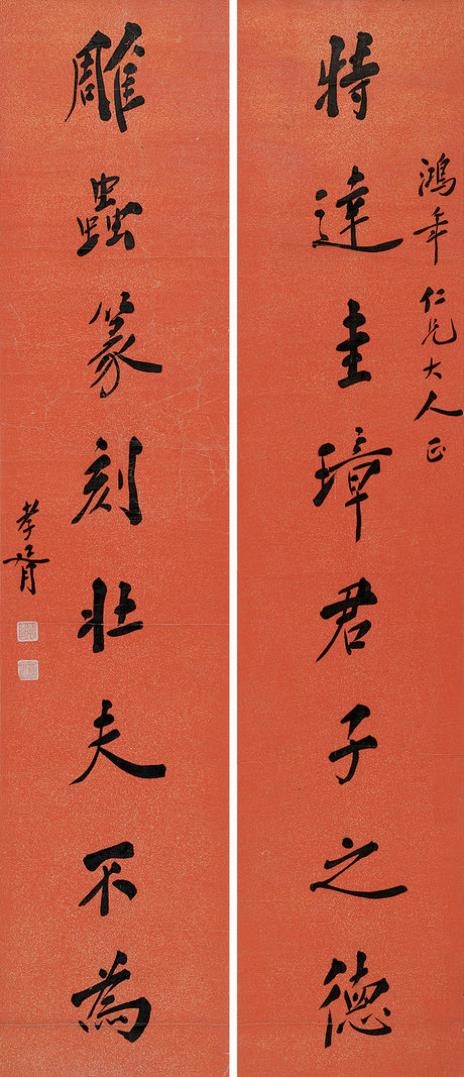 鴻年仁兄大人正
特達圭璋君子之德
雕蟲篆刻壯夫不為
孝胥